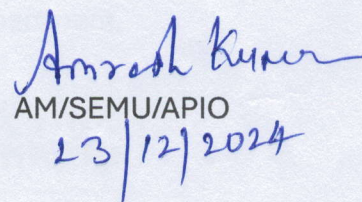 Amresh Kumar
AM/SEMU/APIO
23/12/2024